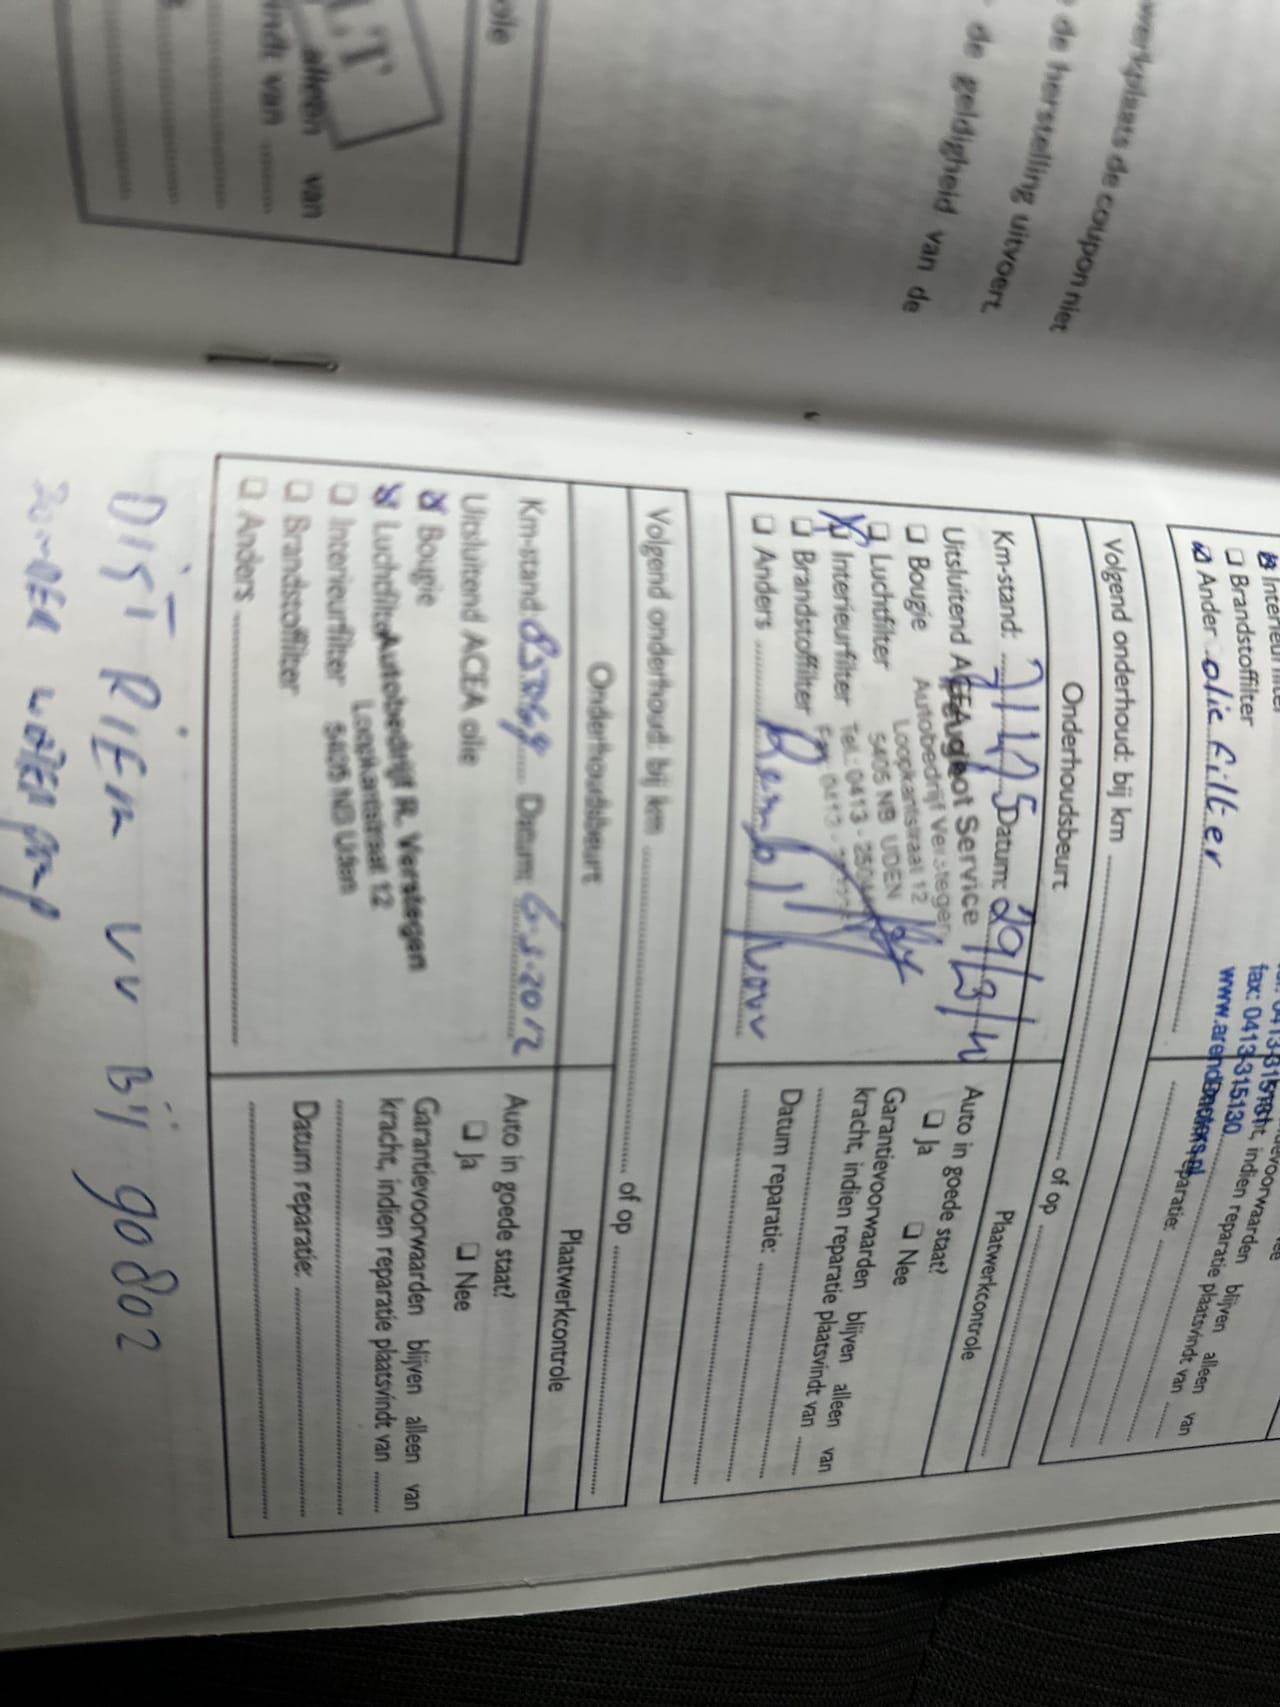 werkplaats de coupon niet
de herstelling uitvoert
de geldigheid van de
alleen van
van
Brandstoffilter
Ander olie filter
fax: 0413-315130
blijven alleen van
indien reparatie plaatsvindt van
Volgend onderhoud: bij km ........ of op ........
Onderhoudsbeurt
Plaatwerkcontrole
Km-stand: 71175 Datum: 29/3/11
Auto in goede staat?
Ja
Nee
Uitsluitend ACEA olie
Peugeot Service
Bougie
Autobedrijf Verstegen
Luchtfilter
Loopkantstraat 12
Interieurfilter
5405 NB UDEN
Brandstoffilter
Tel.: 0413 -
Anders ........ Remblokken
Garantievoorwaarden blijven alleen van
kracht, indien reparatie plaatsvindt van ........
Datum reparatie: ........
Volgend onderhoud: bij km ........ of op ........
Onderhoudsbeurt
Plaatwerkcontrole
Km-stand: 85369 Datum: 6-3-2012
Auto in goede staat?
Ja
Nee
Uitsluitend ACEA olie
Bougie
Luchtfilter
Autobedrijf R. Verstegen
Interieurfilter
Loopkantstraat 12
Brandstoffilter
5405 NB Uden
Anders ........
Garantievoorwaarden blijven alleen van
kracht, indien reparatie plaatsvindt van ........
Datum reparatie: ........
DIST RIEM VV Bij 90802
ZONDER WATER pomp